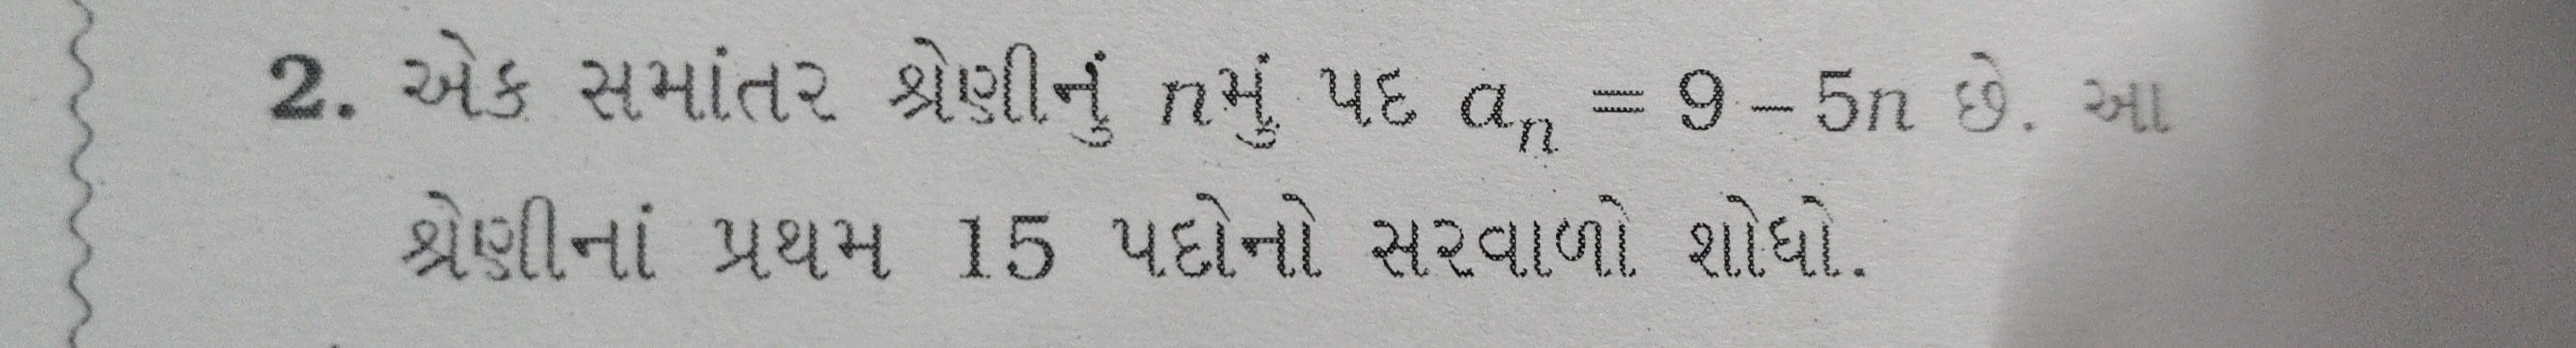 2. એક સમાંતર શ્રેણીનું nમું પદ aₙ = 9 – 5n છે. આ
શ્રેણીનાં પ્રથમ 15 પદોનો સરવાળો શોધો.